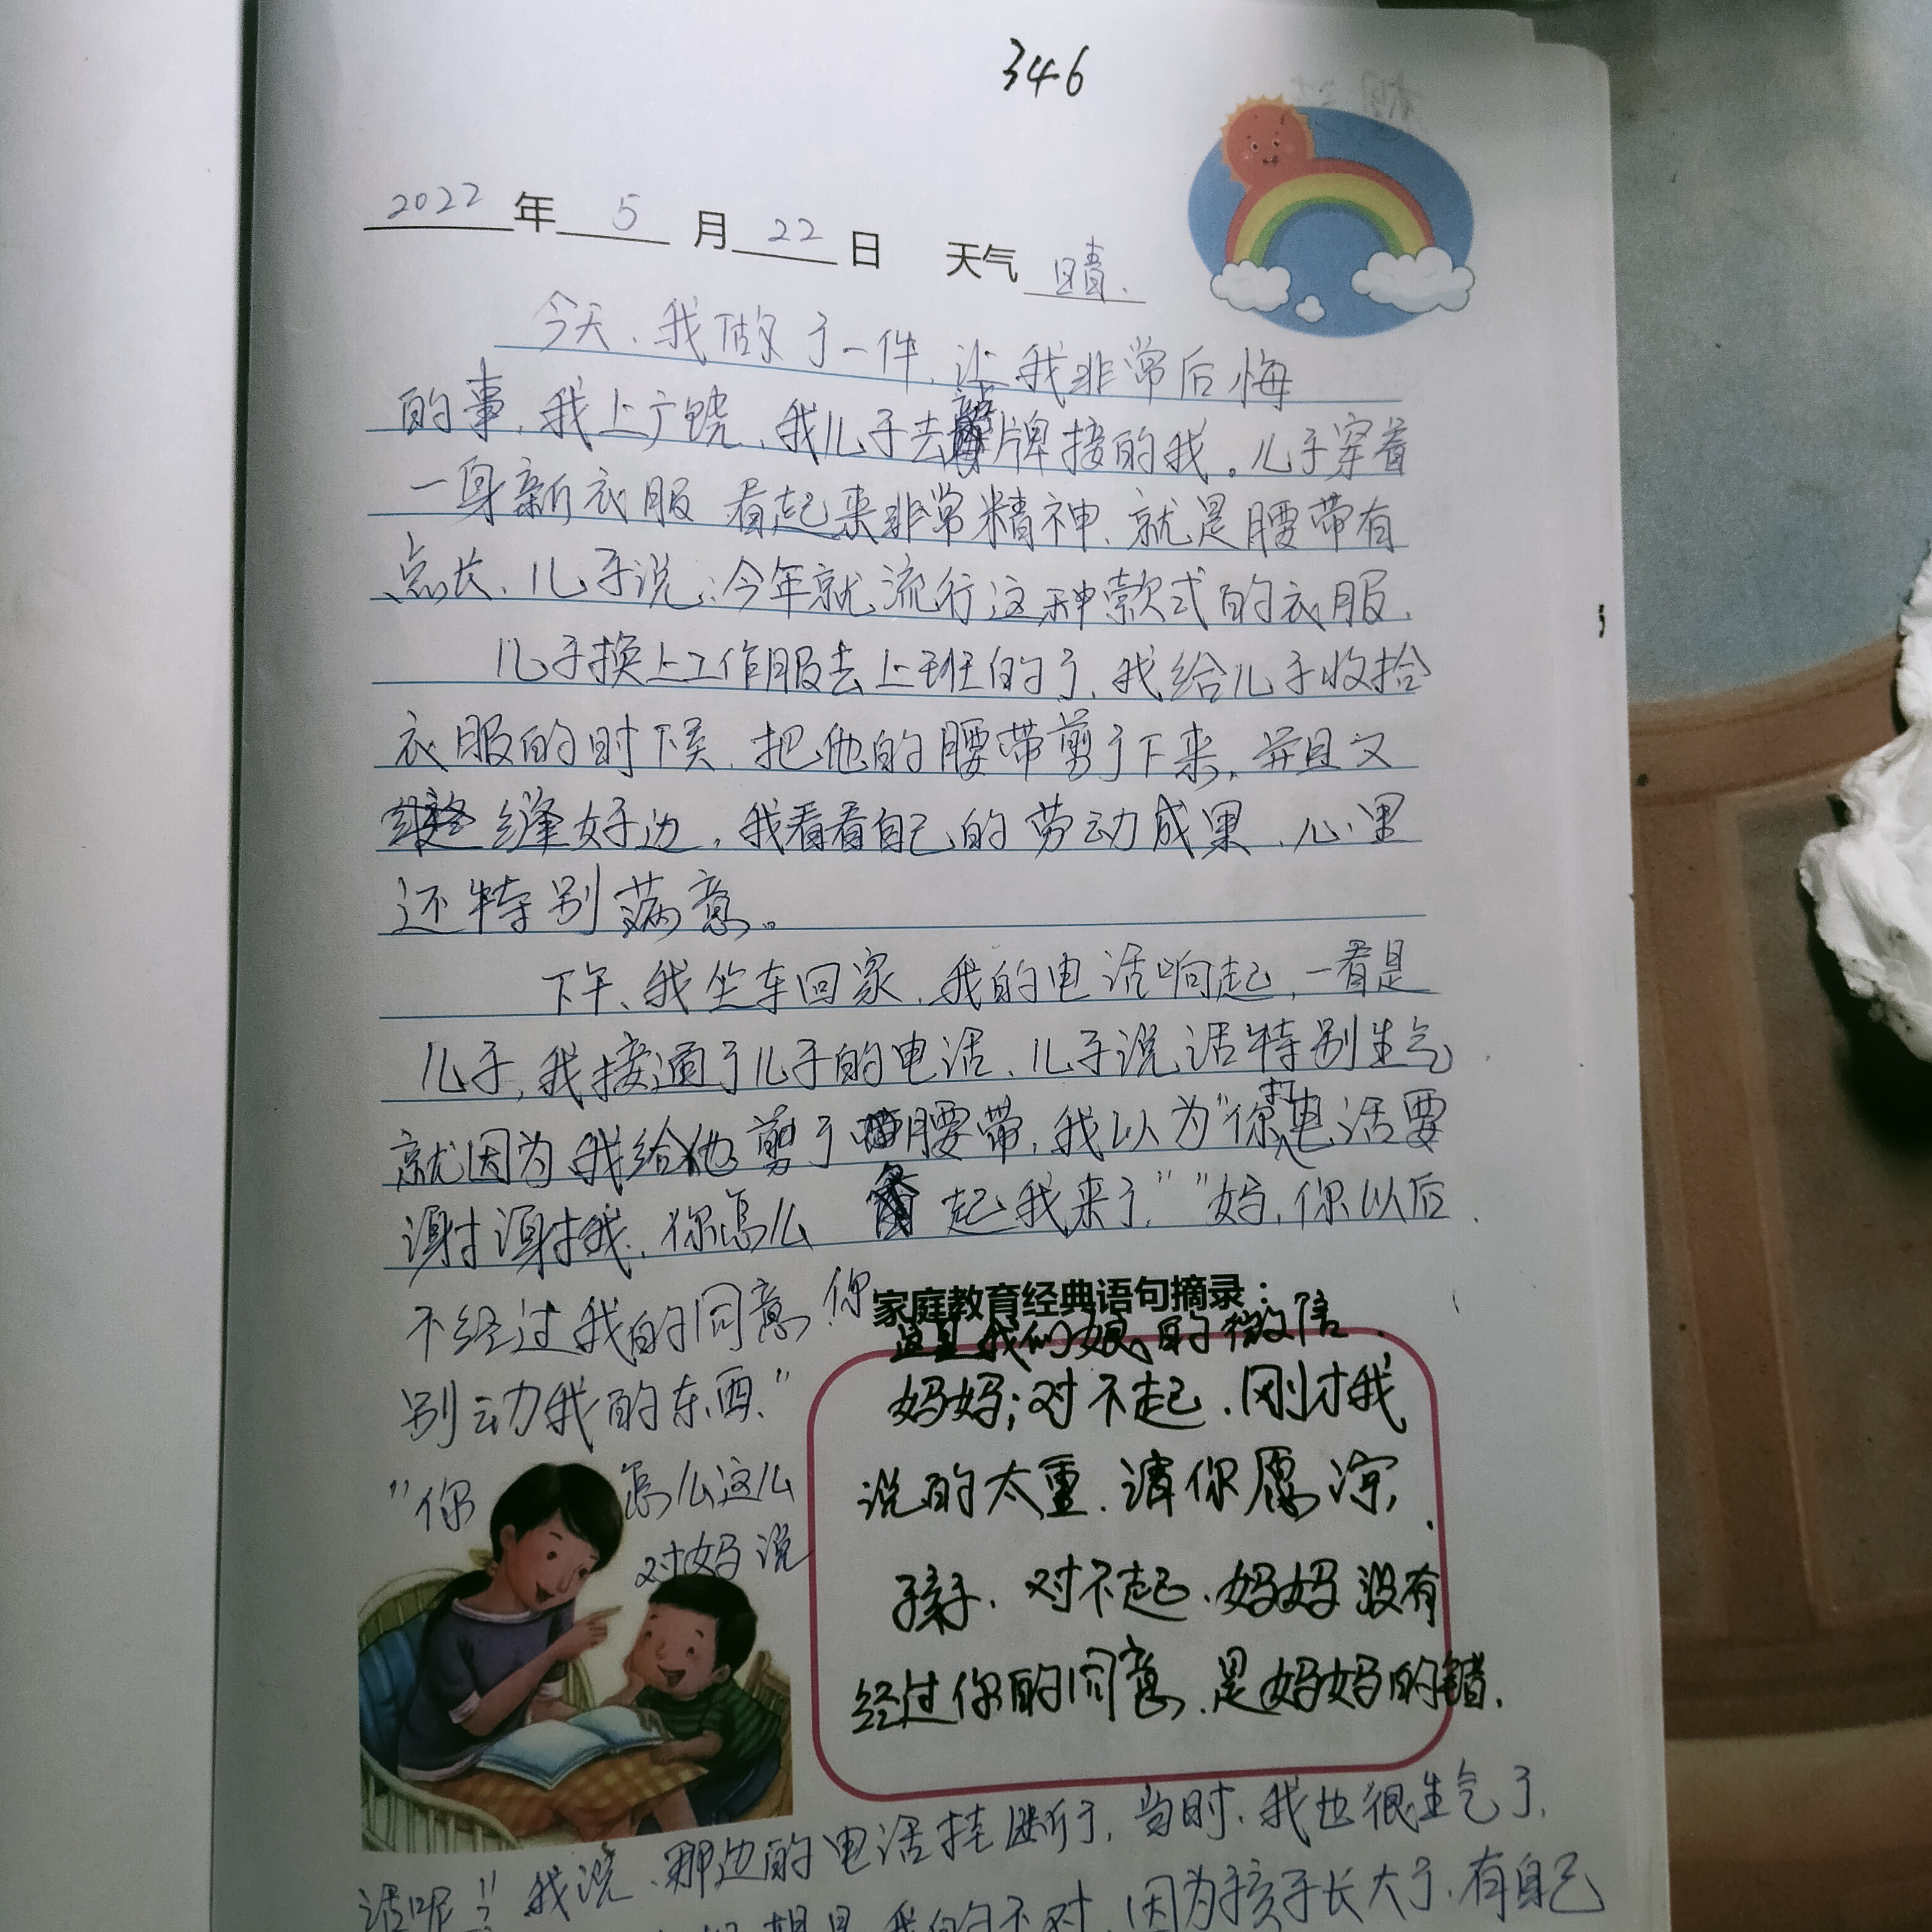 346
2022年 5 月 22 日 天气 晴.
今天、我做了一件、让我非常后悔
的事,我上广饶、我儿子去站牌接的我。儿子穿着
一身新衣服 看起来非常精神、就是腰带有
点长、儿子说:今年就流行这种款式的衣服.
儿子换上工作服去上班的了、我给儿子收拾
衣服的时候、把他的腰带剪了下来,并且又
缝好边,我看看自己的劳动成果、心里
还特别满意。
下午、我坐车回家、我的电话响起,一看是
儿子,我接通了儿子的电话、儿子说话特别生气
就因为我给他剪了腰带,我以为"你打电话要
谢谢我、你怎么 起我来了""妈,你以后
不经过我的同意,你
别动我的东西."
"你 怎么这么
对妈说
家庭教育经典语句摘录:
这是我们娘的微信.
妈妈;对不起.刚才我
说的太重.请你愿谅,
孩子.对不起.妈妈没有
经过你的同意.是妈妈的错.
话呢!"我说、那边的电话挂断了,当时、我也很生气了,
想是我的不对、因为孩子长大了、有自己